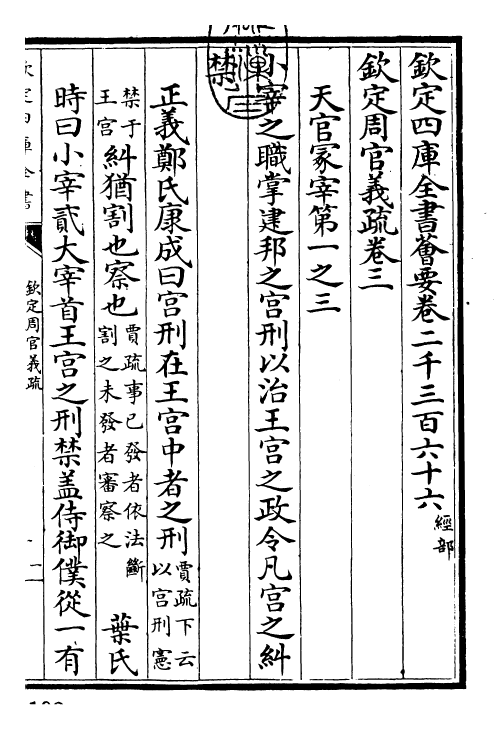 欽定四庫全書薈要卷二千三百六十六 經部
欽定周官義疏卷三
天官冢宰第一之三
小宰之職掌建邦之宫刑以治王宫之政令凡宫之糾
禁
正義鄭氏康成曰宫刑在王宫中者之刑 賈疏下云以宫刑憲
禁于王宫 糾猶割也察也 賈疏事已發者依法斷割之未發者審察之 葉氏
時曰小宰貳大宰首王宫之刑禁蓋侍御僕從一有
欽定四庫全書
欽定周官義疏